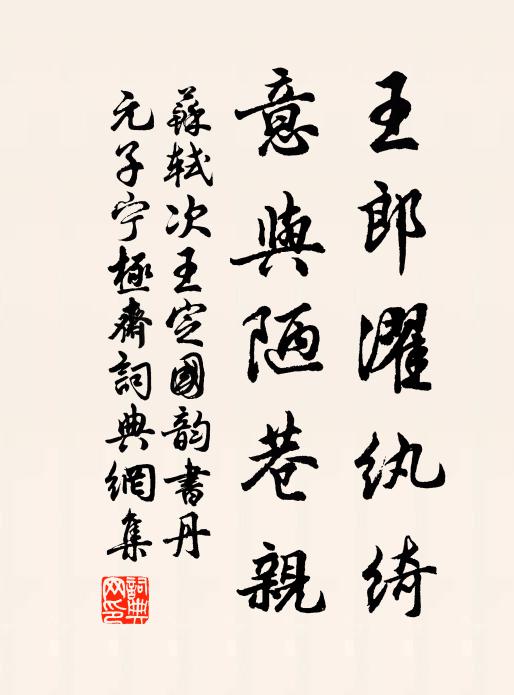 王郎濯紈綺
意與陋巷親
蘇軾次王定國韵書丹
元子宁極齋詞典網集
詞典网印